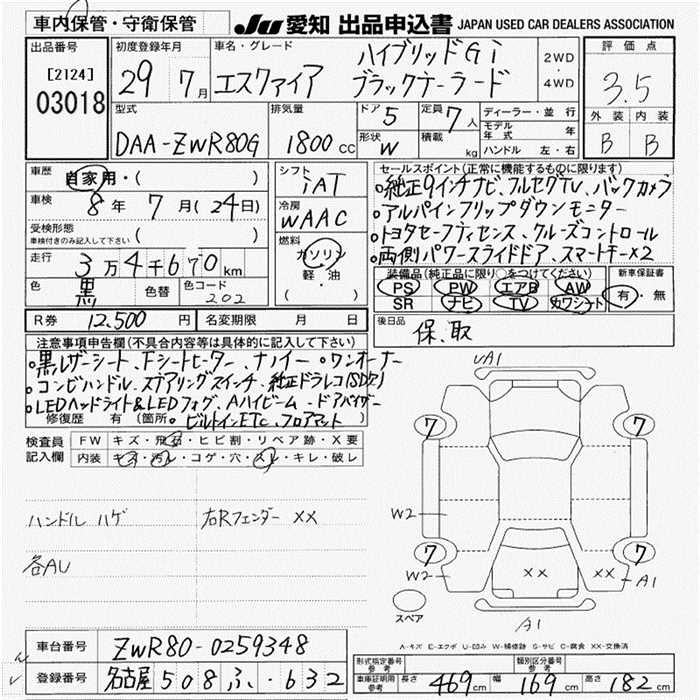 車内保管・守衛保管 JU 愛知 出品申込書 JAPAN USED CAR DEALERS ASSOCIATION
出品番号 [2124] 03018
初度登録年月 29年 7月
車名・グレード エスクァイア ハイブリッドGi ブラックテーラード
2WD・4WD
評価点 3.5
外装 内装
B B
型式 DAA-ZWR80G
排気量 1800cc
ドア 5 形状 W
定員 7人 積載 kg
ディーラー・並行
モデル年式 年
ハンドル 左・右
車歴 自家用・( )
車検 8年 7月(24日)
受検形態 ( )
車検付きのみ記入して下さい
走行 3万4千670km
色 黒 色替 色コード 202
シフト iAT
冷房 WAAC
燃料 ガソリン 軽・油 ( )
セールスポイント(正常に機能するものに限ります)
・純正9インチナビ、フルセグTV、バックカメラ
・アルパインフリップダウンモニター
・トヨタセーフティセンス、クルーズコントロール
・両側パワースライドドア、スマートキー×2
装備品(純正品に限り○をつけてください)
PS PW エアB AW
SR ナビ TV カワシート
新車保証書 有・無
R券 12,500円 名変期限 月 日
後日品 保、取
注意事項申告欄(不具合内容等は具体的に記入して下さい)
・黒レザーシート、Fシートヒーター、ナノイー ・ワンオーナー
・コンビハンドル、ステアリングスイッチ、純正ドラレコ(SD欠)
・LEDヘッドライト&LEDフォグ、Aハイビーム ・ドアバイザー
修復歴 有(箇所 ・ビルトインETC、フロアマット )
検査員記入欄
FW キズ・飛石・ヒビ割・リペア跡・X要
内装 キズ・汚れ・コゲ・穴・スレ・キレ・破レ
ハンドル ハゲ 右Rフェンダー XX
各AU
UA1
7 7
W2
7 7
W2 XX XX A1
A1
スペア
A-キズ E-エクボ U-凹み W-補修跡 S-サビ C-腐食 XX-交換済
車台番号 ZWR80-0259348
登録番号 名古屋 508 ふ・632
形式指定番号 参考 類別区分番号 参考
車庫証明用 参考 長さ 469cm 幅 169cm 高さ 182cm